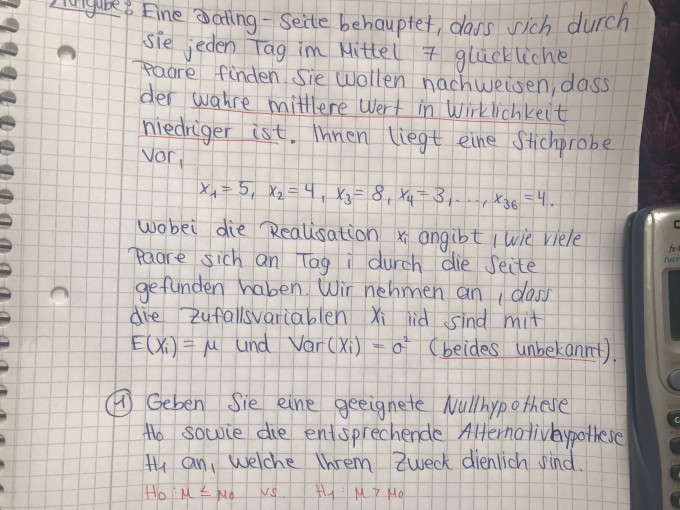 Aufgabe: Eine Dating-Seite behauptet, dass sich durch
sie jeden Tag im Mittel 7 glückliche
Paare finden. Sie wollen nachweisen, dass
der wahre mittlere Wert in Wirklichkeit
niedriger ist. Ihnen liegt eine Stichprobe
vor,
x₁ = 5, x₂ = 4, x₃ = 8, x₄ = 3, ..., x₃₆ = 4.
wobei die Realisation xi angibt, wie viele
Paare sich an Tag i durch die Seite
gefunden haben. Wir nehmen an, dass
die Zufallsvariablen Xi iid sind mit
E(Xi) = μ und Var(Xi) = σ² (beides unbekannt).
① Geben Sie eine geeignete Nullhypothese
H₀ sowie die entsprechende Alternativhypothese
H₁ an, welche Ihrem Zweck dienlich sind.
H₀: μ ≤ μ₀ vs. H₁: μ > μ₀